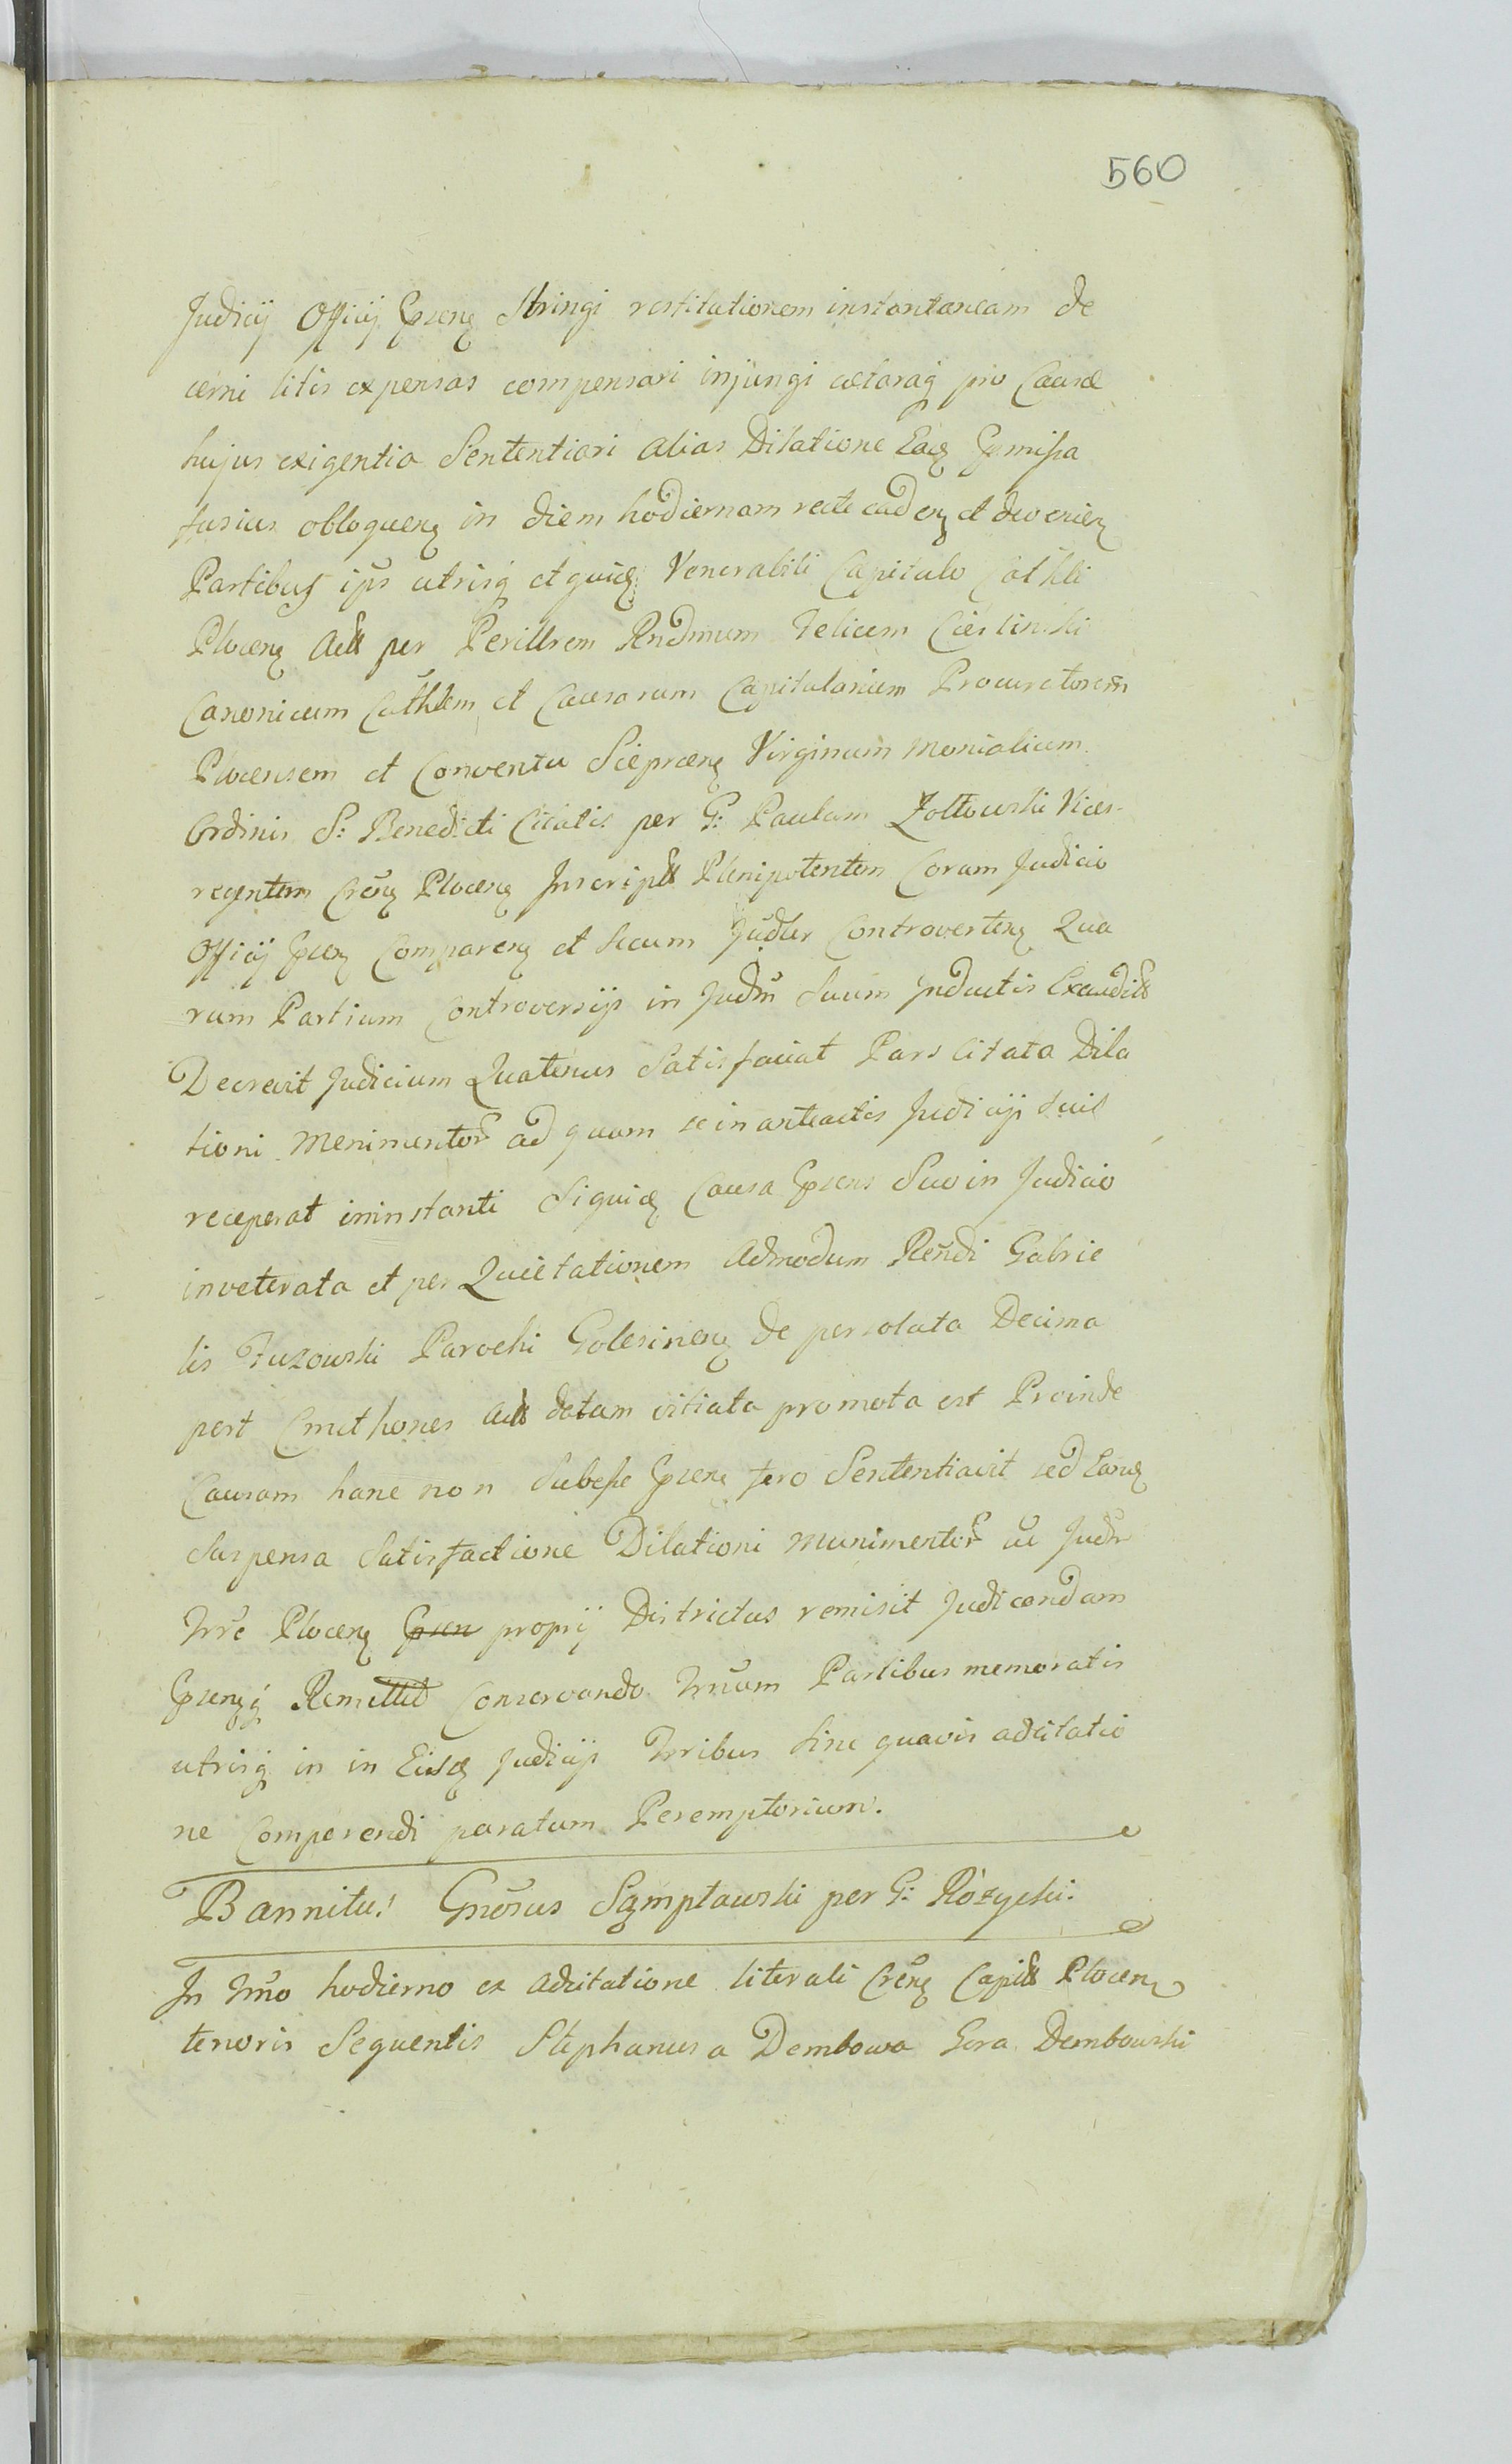 560
Judicij Officij Gpseng Stringi restitutionem instantaneam de
cerni litis expensas compensari injungi caeteraq pro Causae
hujus exigentia Sententiari alias Dilatione Eaq Gpmissa
fusius obloqueng in diem hodiernam recte caden et devenien
Partibus ips utrisq et quidę Venerabili Capitulo Cathli
Ploceng Actt per Perillrem Rndmum Felicem Cieslinski
Canonicum Cathlem et Causarum Capitularium Procuratorem
Plocensem et Conventu Sieprceng Virginum Monialium
Ordinis S: Benedicti Citatis per G: Paulum Zoltowski Vices-
regentem Crēng Ploceng Inscriptt Plenipotentem Coram Judicio
Officij Gpseng Compareng et Secum Judler Controverteng Qua
rum Partium Controversijs in Judm Suum Inductis Exauditt
Decrevit Judicium Quatenus Satisfaciat Pars Citata Dila
tioni Menimentor ad quam se in anteactis Judicijs Suis
receperat ininstanti Siquidę Causa Gpsens Suo in Judicio
inveterata et per Quietationem Admodum Rendi Gabrie
lis Fuzowski Parochi Golesineng de persoluta Decima
pert Cmethones Actt datam vitiata promota est Proinde
Causam hanc non Subesse Gpseng fero Sententiavit sed Eandę
Suspensa Satisfactione Dilationi Munimentor ad Judr
Trre Ploceng Gpsen proprij Districtus remisit Judicandam
Gpsengq Remittit Conservando Trnum Partibus memoratis
utrisq in in Eisdę Judicijs Trribus Sine quavis adcitatio
ne Comparendi paratum Peremptorium.
Bannitu! Gnosus Sąmptawski per G: Różycki.
In Trno hodierno ex Adcitatione literali Crēng Capitt Ploceng
tenoris Sequentis Stephanus a Dembowa Gora Dembowski